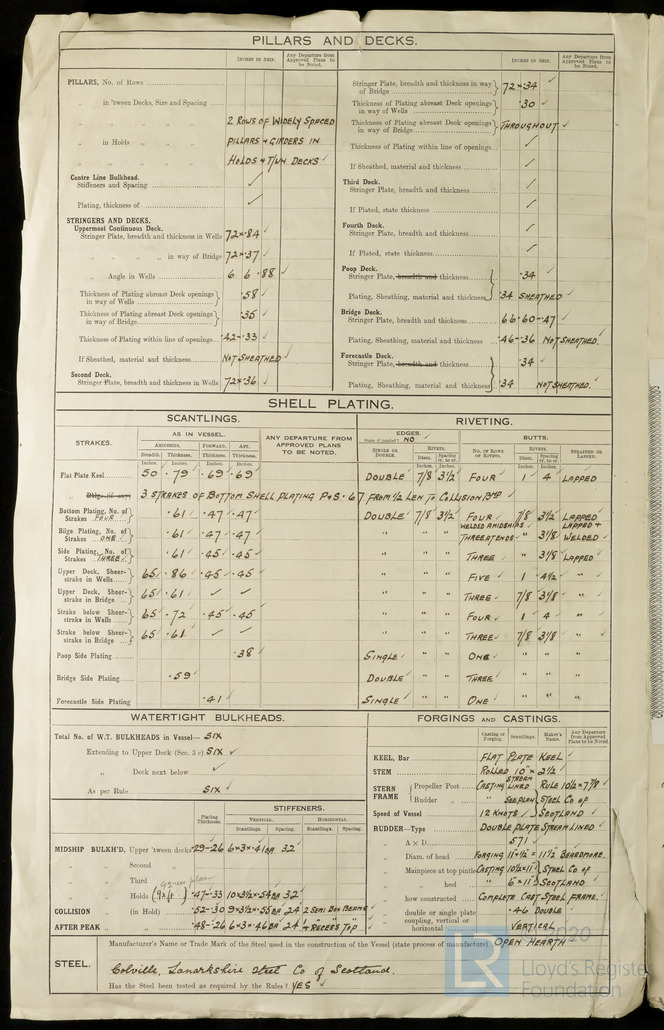 PILLARS AND DECKS.
INCHES IN SHIP.
Any Departure from Approved Plans to be Noted.
INCHES IN SHIP.
Any Departure from Approved Plans to be Noted.
PILLARS, No. of Rows
„ in 'tween Decks, Size and Spacing
2 ROWS OF WIDELY SPACED
„ in Holds „ „
PILLARS & GIRDERS IN
„ „ „ „
HOLDS & T/WN DECKS ✓
Centre Line Bulkhead.
Stiffeners and Spacing ✓
Plating, thickness of ✓
STRINGERS AND DECKS.
Uppermost Continuous Deck.
Stringer Plate, breadth and thickness in Wells 72 × .84 ✓
„ „ „ in way of Bridge 72 × .37 ✓
„ Angle in Wells 6 6 .88 ✓
Thickness of Plating abreast Deck openings in way of Wells .58 ✓
Thickness of Plating abreast Deck openings in way of Bridge .35 ✓
Thickness of Plating within line of openings .42-.33 ✓
If Sheathed, material and thickness NOT SHEATHED ✓
Second Deck.
Stringer Plate, breadth and thickness in Wells 72 × .36 ✓
Stringer Plate, breadth and thickness in way of Bridge 72 × .34 ✓
Thickness of Plating abreast Deck openings in way of Wells .30 ✓
Thickness of Plating abreast Deck openings in way of Bridge THROUGHOUT ✓
Thickness of Plating within line of openings ✓
If Sheathed, material and thickness ✓
Third Deck.
Stringer Plate, breadth and thickness ✓
If Plated, state thickness ✓
Fourth Deck.
Stringer Plate, breadth and thickness ✓
If Plated, state thickness ✓
Poop Deck.
Stringer Plate, breadth and thickness .34 ✓
Plating, Sheathing, material and thickness .34 SHEATHED ✓
Bridge Deck.
Stringer Plate, breadth and thickness 66 .60-.47 ✓
Plating, Sheathing, material and thickness .46-.36 NOT SHEATHED. ✓
Forecastle Deck.
Stringer Plate, breadth and thickness .34 ✓
Plating, Sheathing, material and thickness .34 NOT SHEATHED. ✓
SHELL PLATING.
SCANTLINGS.
RIVETING.
STRAKES.
AS IN VESSEL.
ANY DEPARTURE FROM APPROVED PLANS TO BE NOTED.
EDGES.
State if joggled? NO ✓
BUTTS.
AMIDSHIPS. FORWARD. AFT.
Breadth. Thickness. Thickness. Thickness.
SINGLE OR DOUBLE.
RIVETS.
Diam. Spacing cr. to cr.
NO. OF ROWS OF RIVETS.
RIVETS.
Diam. Spacing cr. to cr.
STRAPPED OR LAPPED.
Inches. Inches. Inches. Inches. Inches. Inches. Inches. Inches.
Flat Plate Keel 50 .79 .69 .69 DOUBLE 7/8 3½ FOUR 1 4 LAPPED
„ Dblg. (if any) 3 STRAKES OF BOTTOM SHELL PLATING P&S .67 FROM ½ LEN TO COLLISION BHD ✓
Bottom Plating, No. of Strakes FOUR .61 .47 .47 DOUBLE 7/8 3½ FOUR 7/8 3½ LAPPED
Bilge Plating, No. of Strakes ONE .61 .47 .47 „ „ „ WELDED AMIDSHIPS THREE AT ENDS „ 3⅛ LAPPED & WELDED
Side Plating, No. of Strakes THREE .61 .45 .45 „ „ „ THREE „ 3⅛ LAPPED
Upper Deck, Sheer-strake in Wells 65 .86 .45 .45 „ „ „ FIVE 1 4½ „
Upper Deck, Sheer-strake in Bridge 65 .61 ✓ ✓ „ „ „ THREE 7/8 3⅛ „
Strake below Sheer-strake in Wells 65 .72 .45 .45 „ „ „ FOUR 1 4 „
Strake below Sheer-strake in Bridge 65 .61 ✓ ✓ „ „ „ THREE 7/8 3⅛ „
Poop Side Plating .38 SINGLE „ „ ONE „ „ „
Bridge Side Plating .59 DOUBLE „ „ THREE „ „ „
Forecastle Side Plating .41 SINGLE „ „ ONE „ „ „
WATERTIGHT BULKHEADS.
Total No. of W.T. BULKHEADS in Vessel— SIX
Extending to Upper Deck (Sec. 3 c) SIX ✓
„ Deck next below ✓
As per Rule SIX ✓
Plating Thickness.
STIFFENERS.
VERTICAL. HORIZONTAL.
Scantlings. Spacing. Scantlings. Spacing.
MIDSHIP BULK'D, Upper 'tween decks .29-.26 6×3×.41 BA 32
„ „ Second
„ „ Third
„ „ Holds .47-.33 10×3½×.54 BA 32
COLLISION „ (in Hold) .52-.30 9×3½×.55 BA 24 2 SEMI BOX BEAMS
AFTER PEAK „ „ .48-.26 6×3×.46 BA 24 & RECESS TOP
FORGINGS AND CASTINGS.
Casting or Forging. Scantlings. Maker's Name. Any Departure from Approved Plans to be Noted.
KEEL, Bar FLAT PLATE KEEL ✓
STEM ROLLED 10" × 2½
STERN FRAME
Propeller Post CASTING STREAM LINED RULE 10½ × 7⅞
Rudder „ „ SEE PLAN STEEL CO OF
Speed of Vessel 12 KNOTS SCOTLAND
RUDDER—Type DOUBLE PLATE STREAMLINED ✓
„ A × D 571 ✓
„ Diam. of head FORGING 11½ = 11½ BEARDMORE.
„ Mainpiece at top pintle CASTING 10½×11" STEEL CO OF
„ „ heel „ 6 × 11" SCOTLAND
„ how constructed COMPLETE CAST STEEL FRAME.
„ double or single plate .46 DOUBLE
„ coupling, vertical or horizontal VERTICAL
STEEL.
Manufacturer's Name or Trade Mark of the Steel used in the construction of the Vessel (state process of manufacture) OPEN HEARTH
Colville, Lanarkshire Steel Co of Scotland.
Has the Steel been tested as required by the Rules? YES ✓
LR
© 2020
Lloyd's Register
Foundation